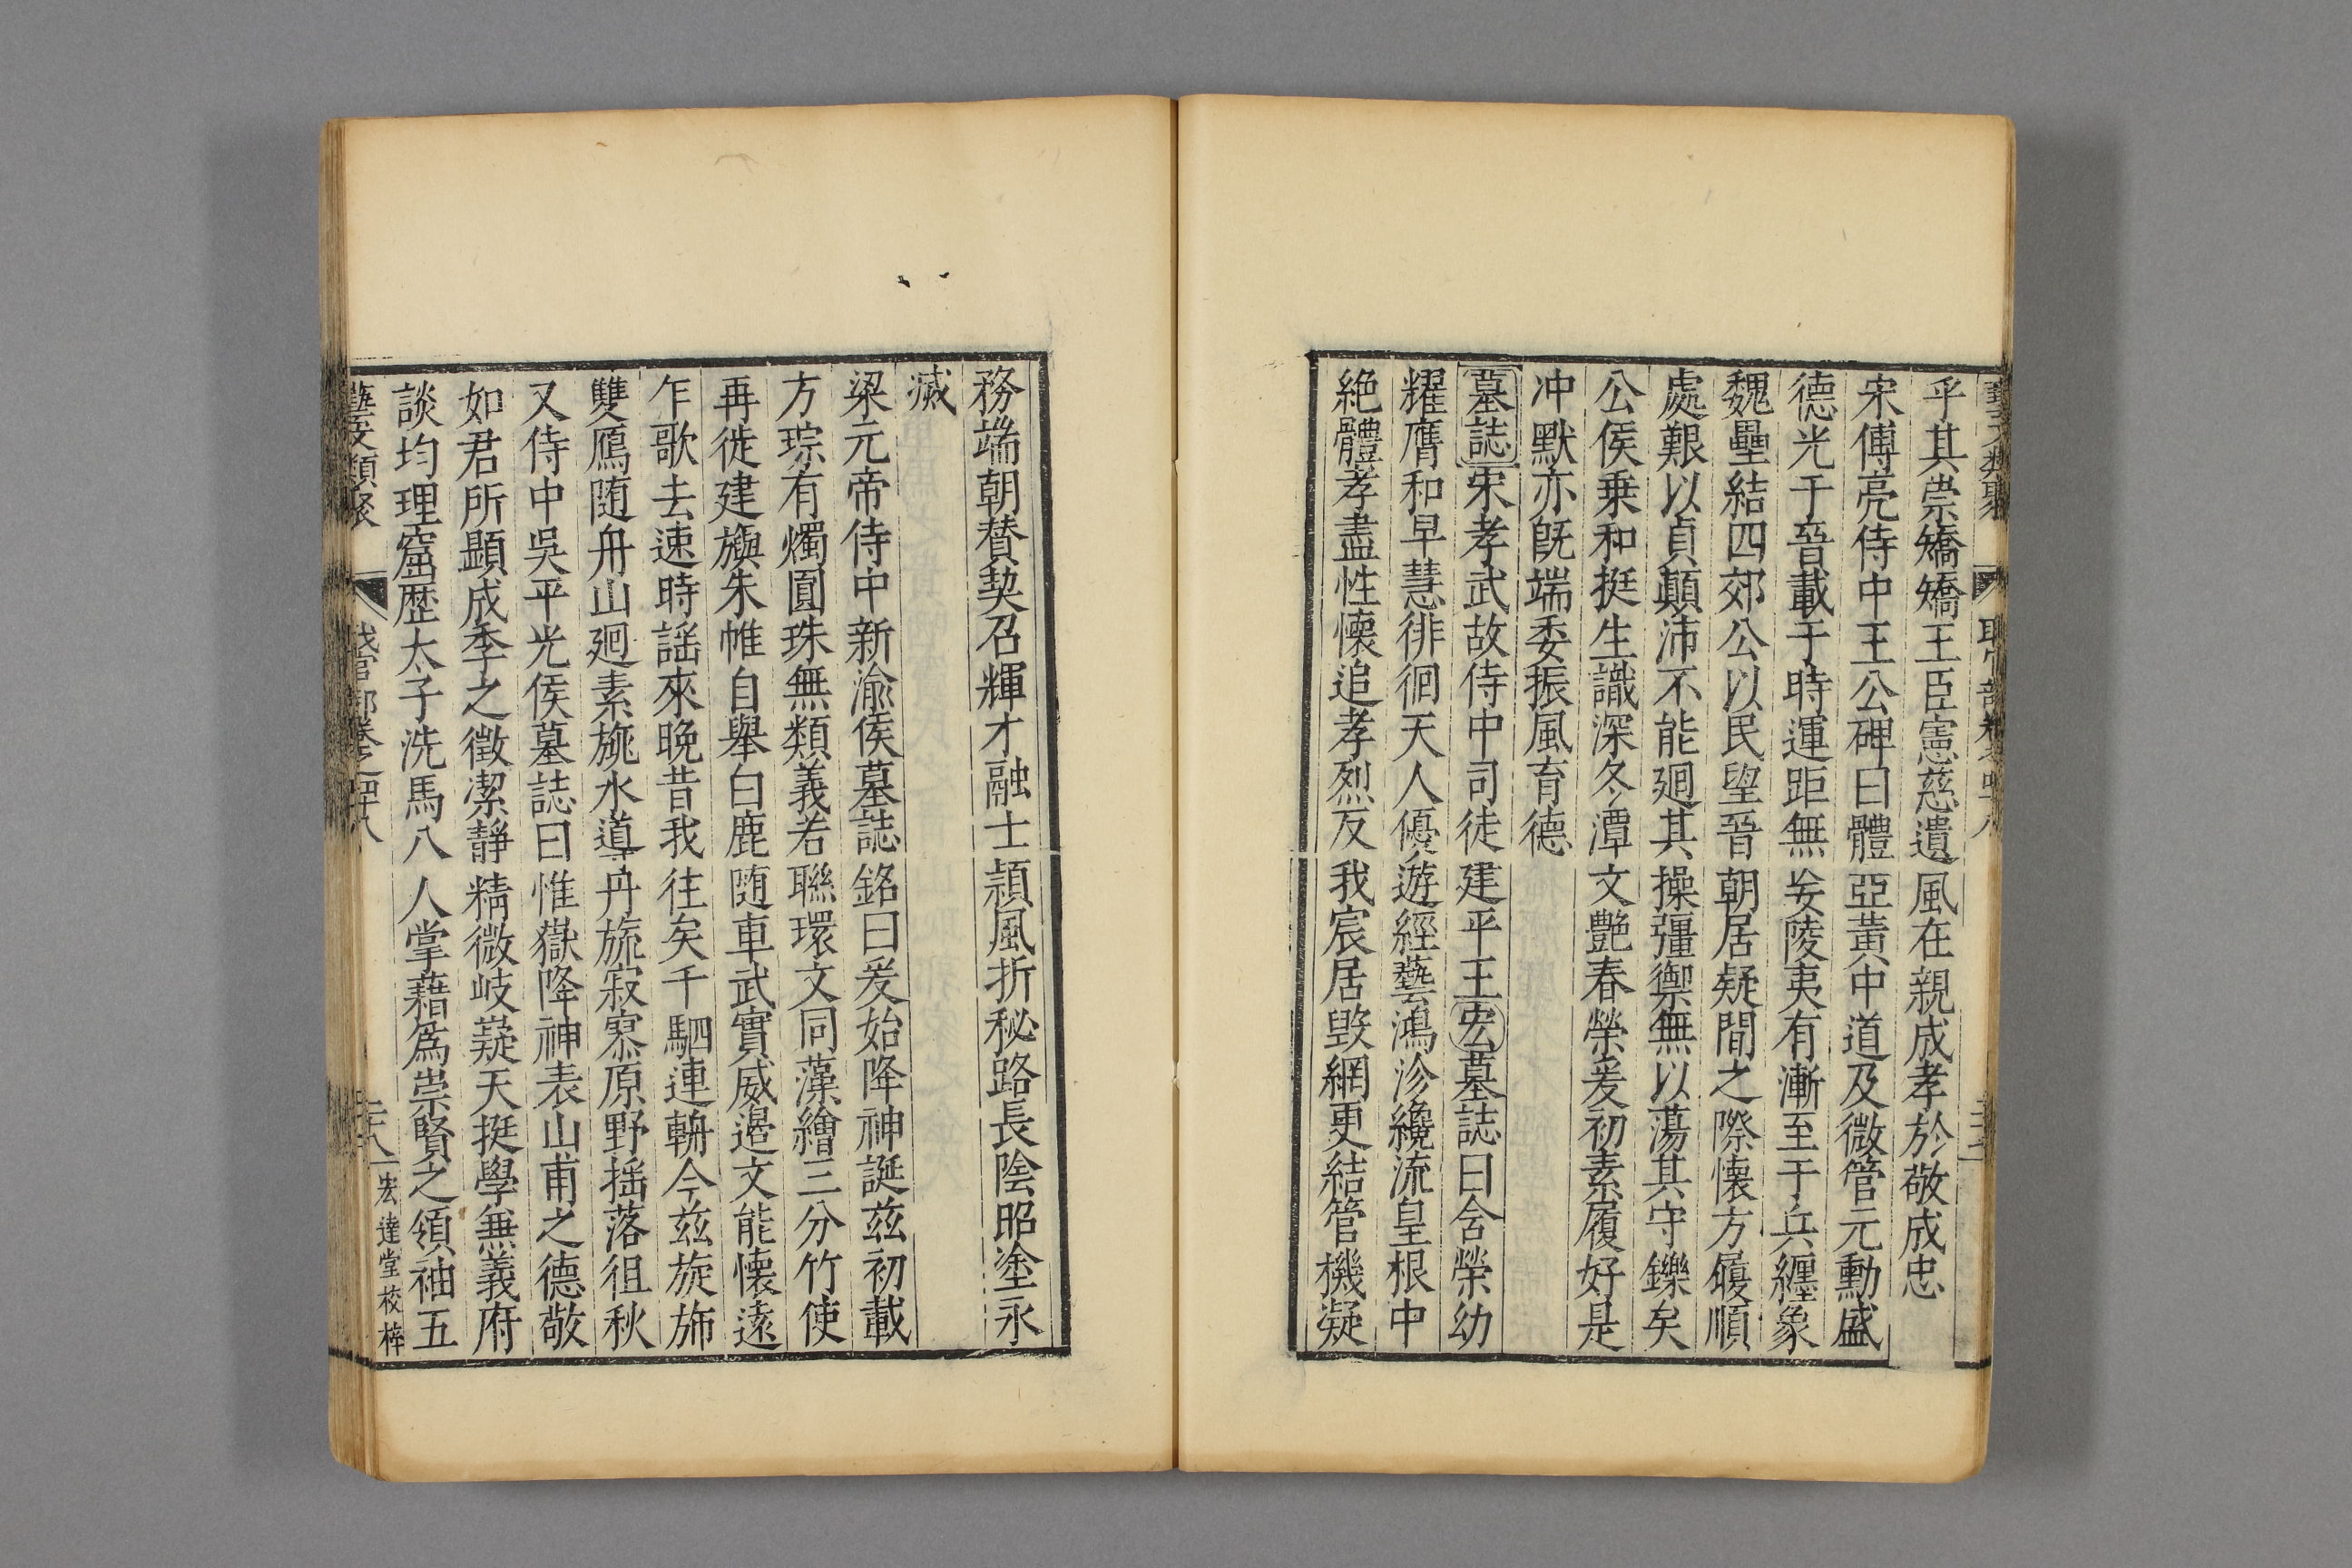 乎其崇矯矯王臣憲慈遺風在親成孝於敬成忠
宋傅亮侍中王公碑曰體亞黃中道及微管元勳盛
德光于晉載于時運距無妄陵夷有漸至于兵纏象
魏壘結四郊公以民望晉朝居疑間之際懷方履順
處艱以貞顛沛不能廻其操彊禦無以蕩其守鑠矣
公侯乗和挺生識深冬潭文艷春榮爰初素履好是
冲默亦旣端委振風育德
墓誌宋孝武故侍中司徒建平王宏墓誌曰含榮幼
耀膺和早慧徘徊天人優遊經藝鴻沴纔流皇根中
絶體孝盡性懷追孝烈反我宸居毀網更結管機凝
務端朝賛契召輝才融士頴風折秘路長陰昭塗永
滅
梁元帝侍中新渝侯墓誌銘曰爰始降神誕兹初載
方琮有燭圓珠無類義若聯環文同藻繪三分竹使
再徙建旟朱帷自舉白鹿随車武實威邉文能懷遠
乍歌去速時謡來晚昔我往矣千駟連輈今兹旋斾
雙鴈随舟山廻素旐水道丹旒寂寡原野揺落徂秋
又侍中吳平光侯墓誌曰惟嶽降神表山甫之德敬
如君所顯成季之徵潔靜精微岐嶷天挺學無義府
談均理窟歴太子洗馬八人掌藉為崇賢之領袖五
藝文類聚 職官部卷之四十八 二十八 宏達堂校梓